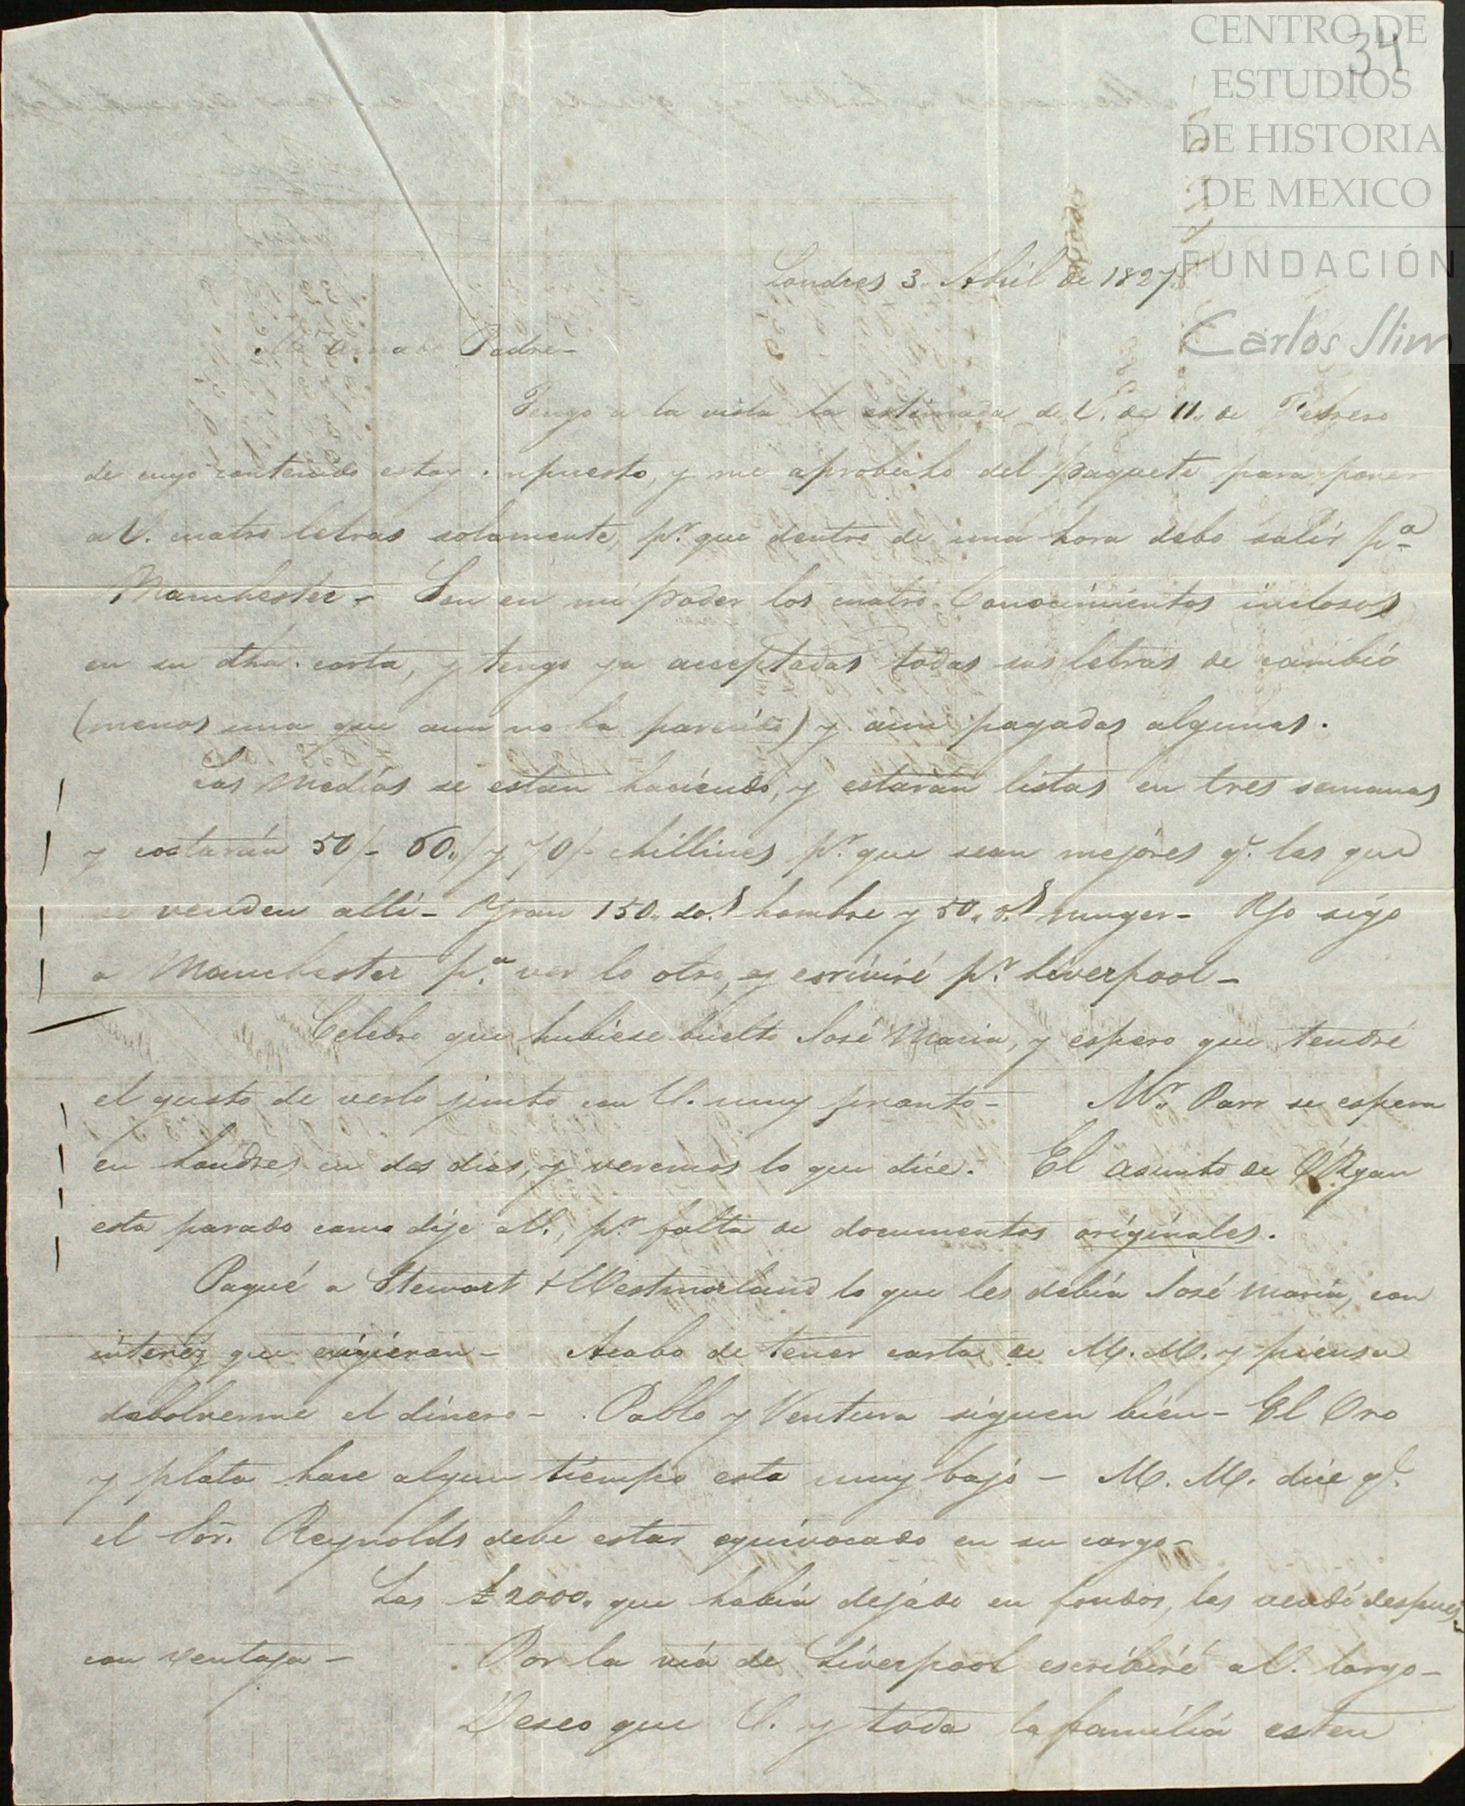 CENTRO DE
ESTUDIOS
DE HISTORIA
DE MEXICO
FUNDACIÓN
Carlos Slim
34
Londres 3. Abril de 1827.
Mi amado Padre-
Tengo a la vista la estimada de V. de 11. de Febrero
de cuyo contenido estoy impuesto, y me aprobecho del paquete para poner
a V. cuatro letras solamente, pr. que dentro de una hora debo salir pa
Manchester - Son en mi poder los cuatro Conocimientos inclosos
en su dha. carta, y tengo ya acceptadas todas sus letras de cambio
(menos una que aun no ha parecido) y aun pagadas algunas.
Las Medias se estan haciendo, y estarán listas en tres semanas
y costarán 50/- 60,,/ y 70/- chillines pr. que sean mejores qe. las que
se venden alli - Yran 150,, dos. hombre y 50,, ds. muger - Yo sigo
a Manchester pa. ver lo otro, y escriviré pr. Liverpool -
Celebro que hubiese buelto José Maria, y espero que tendré
el gusto de verlo junto con V. muy pronto - Mr. Parr se espera
en Londres en dos dias, y veremos lo que dice. El asunto de O'Ryan
esta parado como dije a V., pr. falta de documentos originales.
Pagué a Stewart & Westmorland lo que les debia José Maria, con
interéz que exigieron - Acabo de tener carta de M. M. y piensa
debolverme el dinero - Pablo y Ventura siguen bien - El Oro
y plata hace algun tiempo esta muy bajo - M. M. dice qe.
el Sor. Reynolds debe estar equivocado en su cargo -
Las £2000,, que habia dejado en fondos, las vendi despues
con ventaja - Por la via de Liverpool escribiré a V. largo -
Deseo que V. y toda la familia esten